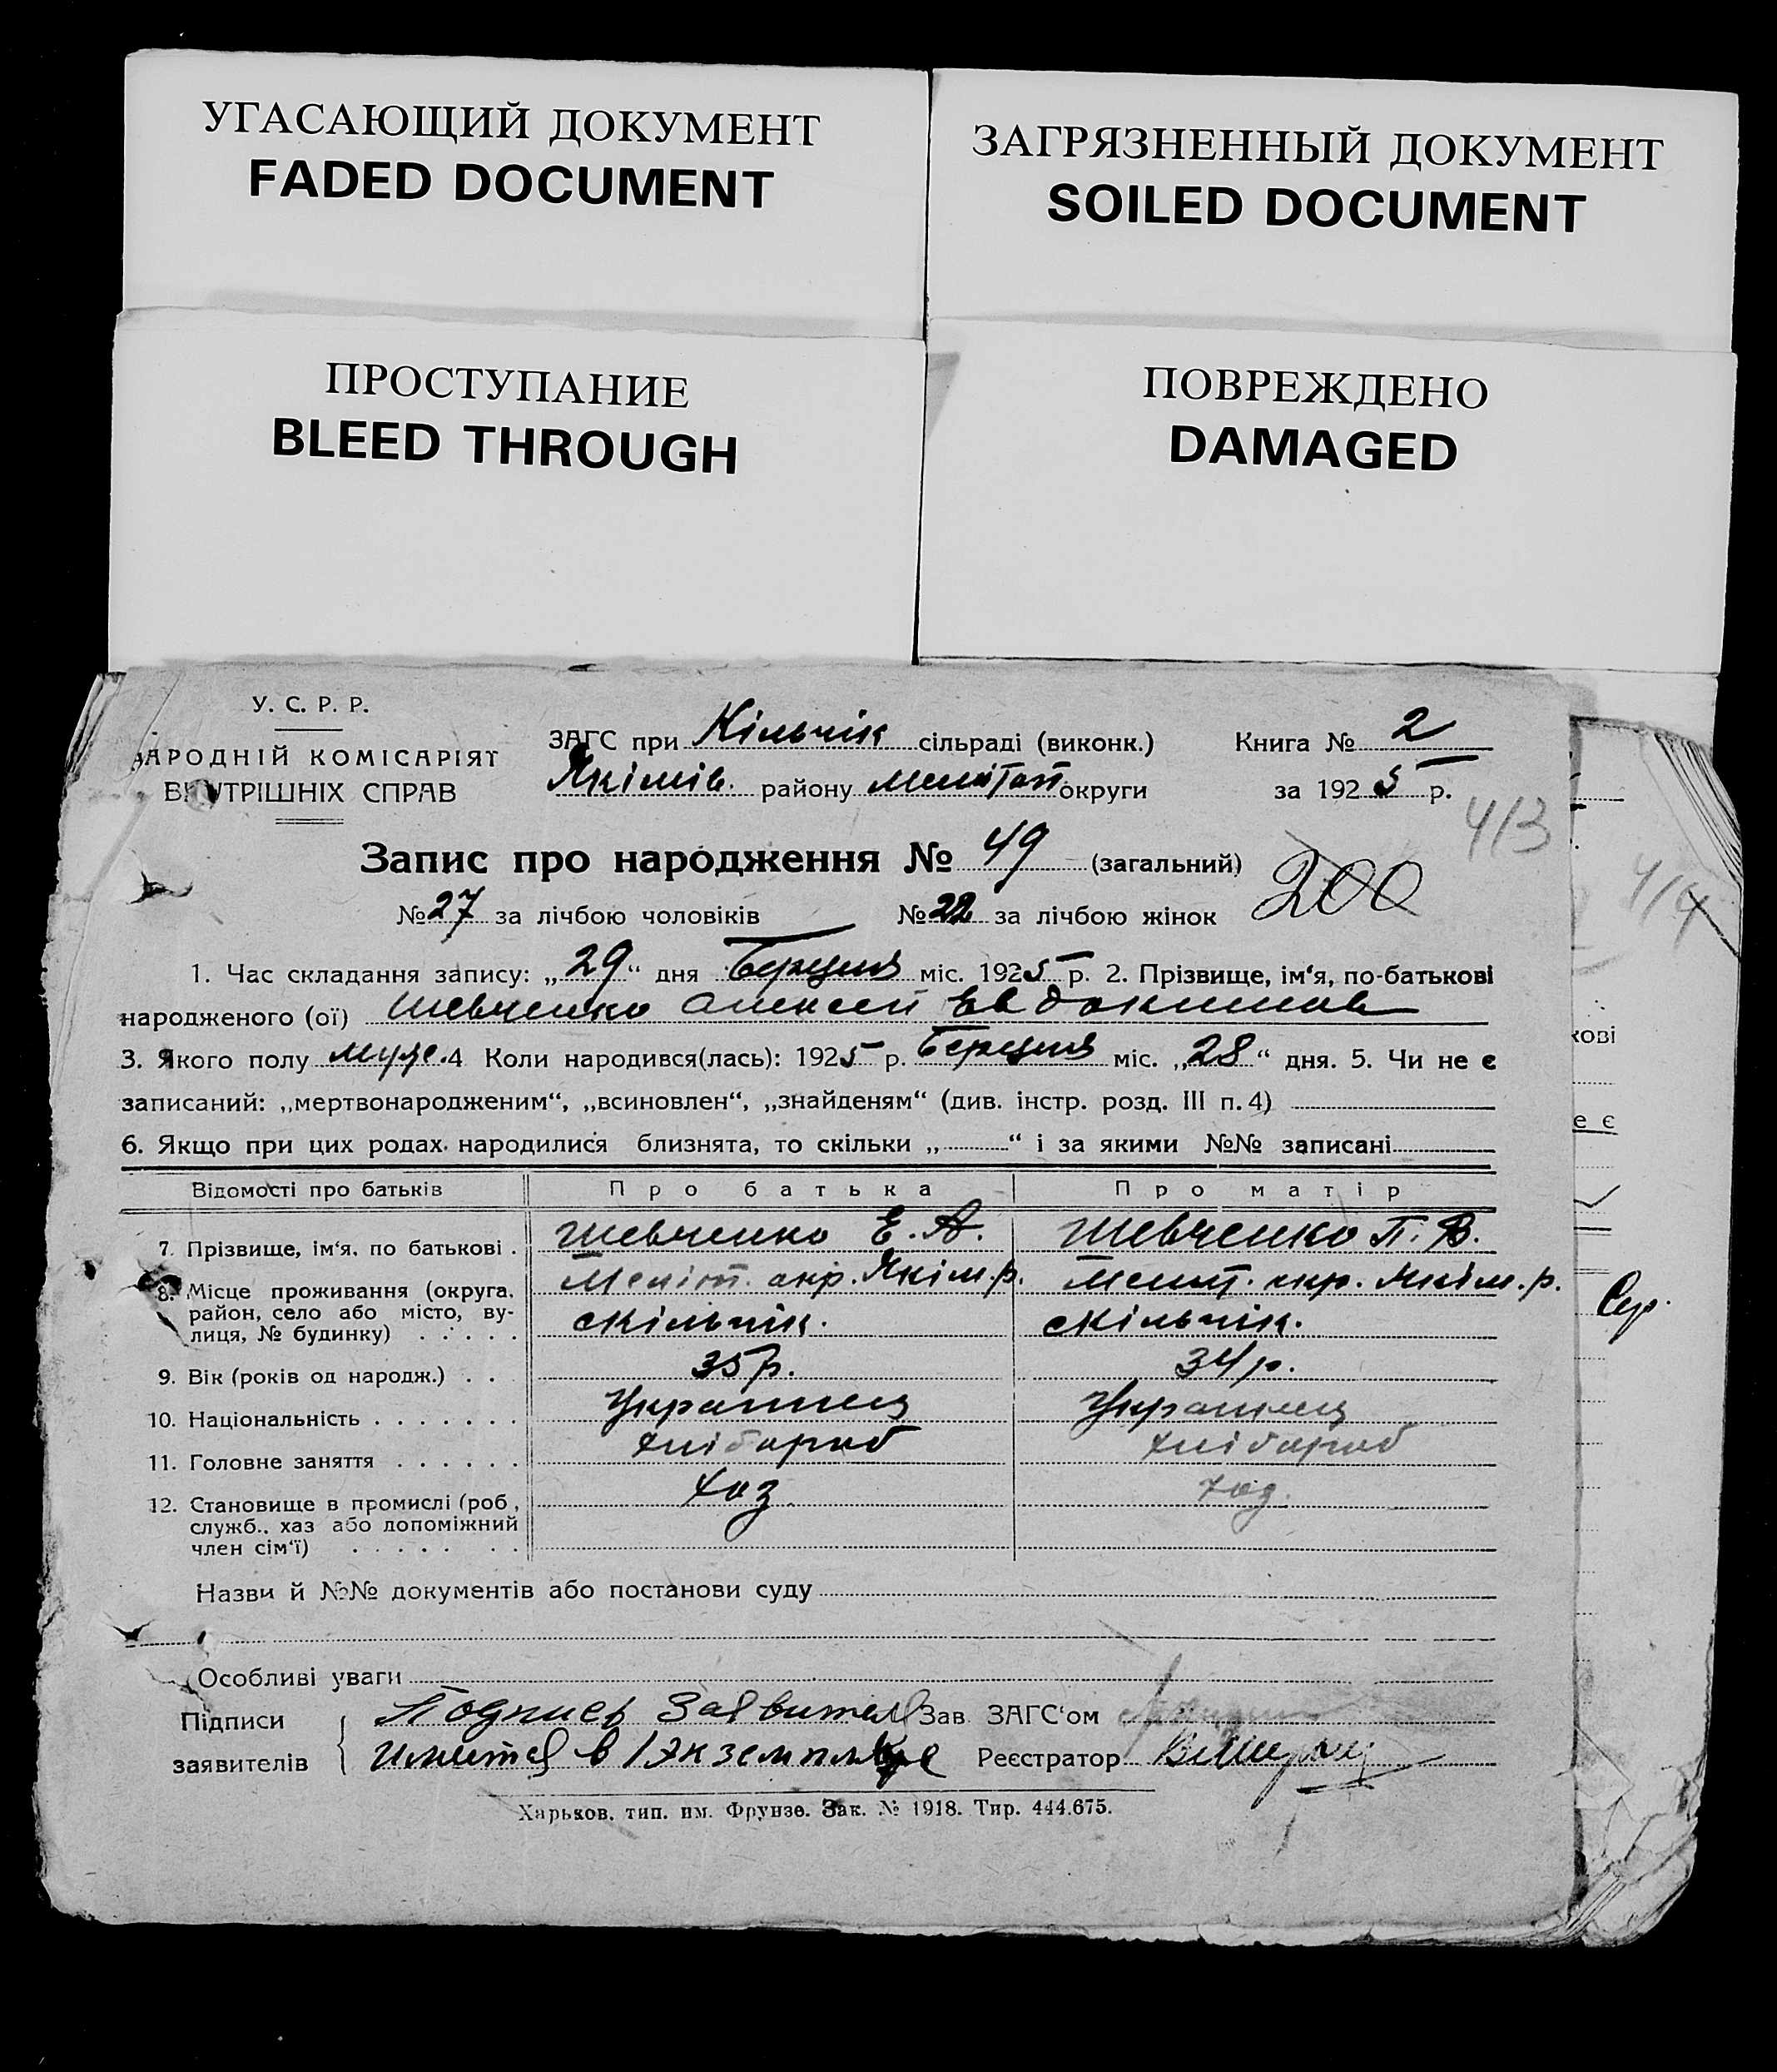 УГАСАЮЩИЙ ДОКУМЕНТ
FADED DOCUMENT
ЗАГРЯЗНЕННЫЙ ДОКУМЕНТ
SOILED DOCUMENT
ПРОСТУПАНИЕ
BLEED THROUGH
ПОВРЕЖДЕНО
DAMAGED
У. С. Р. Р.
НАРОДНІЙ КОМІСАРІЯТ
ВНУТРІШНІХ СПРАВ
ЗАГС при Кільчік сільраді (виконк.) Книга № 2
Якімів. району Мелітоп округи за 1925 р.
413
Запис про народження № 49 (загальний)
200
№ 27 за лічбою чоловіків № 22 за лічбою жінок
414
1. Час складання запису: „29“ дня Березня міс. 1925 р. 2. Прізвище, ім‘я, по-батькові
народженого (ої) Шевченко Алексей Евдокимов
3. Якого полу муже. 4 Коли народився(лась): 1925 р. Березня міс. „28“ дня. 5. Чи не є
записаний: „мертвонародженим“, „всиновлен“, „знайденям“ (див. інстр. розд. III п. 4)
6. Якщо при цих родах народилися близнята, то скільки „ “ і за якими №№ записані
Відомості про батьків Про батька Про матір
7. Прізвище, ім‘я, по батькові . Шевченко Е. А. Шевченко П. В.
8. Місце проживання (округа, Меліт. окр. Якім. р. Меліт. окр. Якім. р.
район, село або місто, ву-
лиця, № будинку) . . . . . скільчік. скільчік.
Сер.
9. Вік (років од народж.) . . 35 р. 34 р.
10. Національність . . . . . . . Українец Українец
11. Головне заняття . . . . . . хлібороб хлібороб
12. Становище в промислі (роб, хаз хаз.
служб., хаз або допоміжний
член сім‘ї) . . . . . . .
Назви й №№ документів або постанови суду
Особливі уваги
Підписи Подпись Заявителя Зав ЗАГС‘ом
заявителів имеется в 1 экземпляре Реєстратор
Харьков, тип. им. Фрунзе. Зак. № 1918. Тир. 444.675.